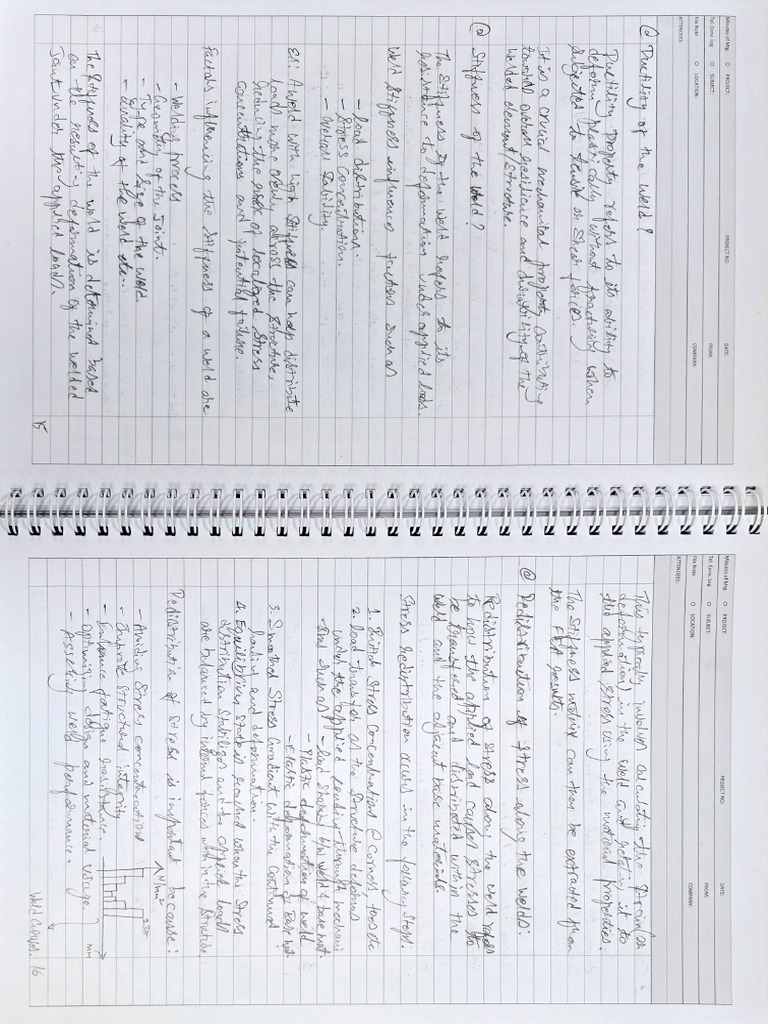 Minutes of Mtg. O PROJECT: PROJECT NO: DATE:
Tel. Conv. Log O SUBJECT: FROM:
File Note O LOCATION: COMPANY:
ATTENDEES:
@ Ductility of the weld?
Ductility property refers to its ability to
deform plastically without fracturing when
subjected to tensile or shear forces.
It is a crucial mechanical property contributing
toward overall resilience and durability of the
welded element/structure.
@ Stiffness of the weld?
The stiffness of the weld refers to its
resistance to deformation under applied loads.
Weld stiffness influences factors such as
- load distributions.
- Stress concentration.
- overall stability.
Ex: A weld with high stiffness can help distribute
loads more evenly across the structure,
reducing the risk of localized stress
concentrations and potential failure.
Factors influencing the stiffness of a weld are
- Welding process
- Geometry of the Joint.
- Type and size of the weld
- Quality of the weld etc...
The stiffness of the weld is determined based
on the resulting deformation of the welded
Joint under the applied loads.
15
Minutes of Mtg. O PROJECT: PROJECT NO: DATE:
Tel. Conv. Log O SUBJECT: FROM:
File Note O LOCATION: COMPANY:
ATTENDEES:
This typically involves calculating the strain (or
deformation) in the weld and relating it to
the applied stress using the material properties.
The stiffness matrix can then be extracted from
the FEA results.
@ Redistribution of stress along the welds:
Redistribution of stress along the weld refers
to how the applied load causes stresses to
be transferred and distributed within the
weld and the adjacent base materials
Stress redistribution occurs in the following steps:
1. Initial stress concentrations @ corners toes etc
2. load transfer as the structure deforms
under the applied loading through mechanisms
such as - load sharing b/w weld & base mat.
- Plastic deformation of weld
- Elastic deformation of base mat.
3. Smoothed stress gradient with the continued
loading and deformation.
4. Equilibrium state is reached when the stress
distribution stabilizes and the applied loads
are balanced by internal forces within the structure
Redistribution of stress is important because:
- Avoids stress concentrations
- Improve structural integrity
- Enhance fatigue resistance.
- optimising design and material usage
- Assessing weld performance.
N/mm²
mm
16